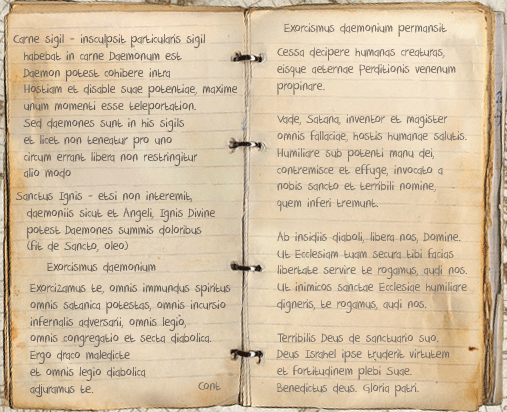 Carne sigil - insculpsit particularis sigil
habebat in carne Daemonum est
Daemon potest cohibere intra
Hostiam et disable suae potentiae, maxime
unum momenti esse teleportation.
Sed daemones sunt in his sigils
et licet non teneatur pro uno
circum errant libera non restringitur
alio modo
Sanctus Ignis - etsi non interemit,
daemoniis sicut et Angeli, Ignis Divine
potest Daemones summis doloribus
(fit de Sancto, oleo)
Exorcismus daemonium
Exorcizamus te, omnis immundus spiritus
omnis satanica potestas, omnis incursio
infernalis adversarii, omnis legio,
omnis congregatio et secta diabolica.
Ergo draco maledicte
et omnis legio diabolica
adjuramus te.
Cont
Exorcismus daemonium permansit
Cessa decipere humanas creaturas,
eisque aeternae Perditionis venenum
propinare.
Vade, Satana, inventor et magister
omnis fallaciae, hostis humanae salutis.
Humiliare sub potenti manu dei,
contremisce et effuge, invocato a
nobis sancto et terribili nomine,
quem inferi tremunt.
Ab insidiis diaboli, libera nos, Domine.
Ut Ecclesiam tuam secura tibi facias
libertate servire te rogamus, audi nos.
Ut inimicos sanctae Ecclesiae humiliare
digneris, te rogamus, audi nos.
Terribilis Deus de sanctuario suo,
Deus Israhel ipse truderit virtutem
et fortitudinem plebi Suae.
Benedictus deus. Gloria patri.